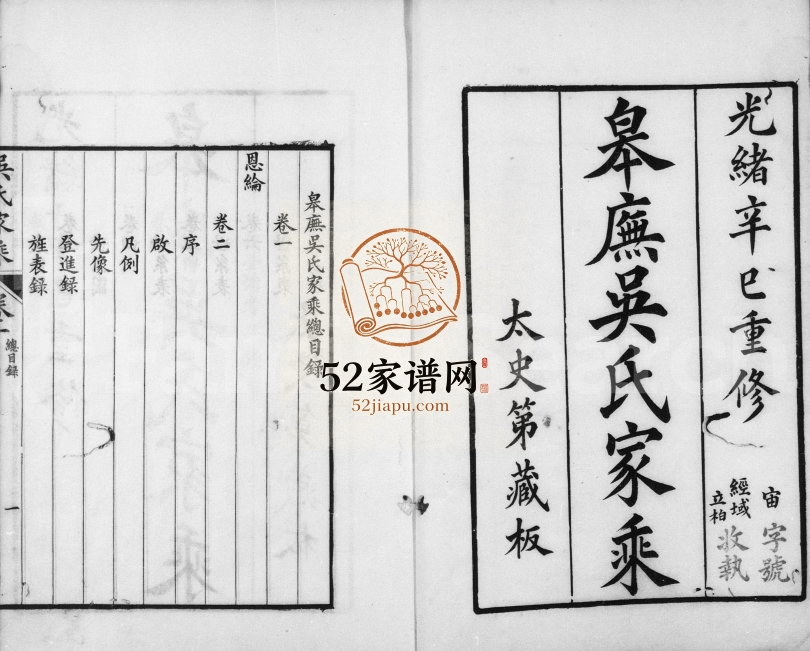 光緒辛巳重修
宙字號
經域
立柏
收執
皋廡吳氏家乘
太史第藏板
皋廡吳氏家乘總目錄
卷一
恩綸
卷二
序
啟
凡例
先像
登進錄
旌表錄
吳氏家乘
總目錄
一
52家谱网
52jiapu.com